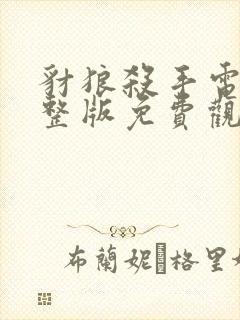 豺狼殺手電
整版免費觀
布蘭妮·格里